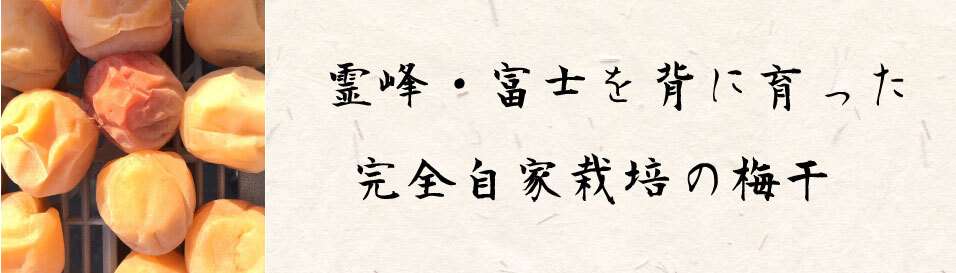 霊峰・富士を背に育った
完全自家栽培の梅干